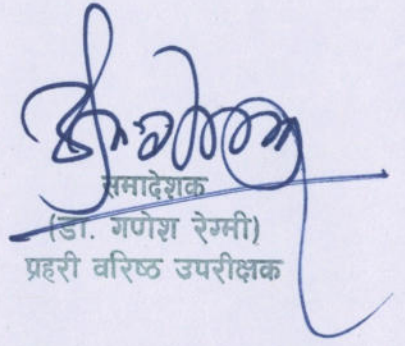 समादेशक
(डा. गणेश रेग्मी)
प्रहरी वरिष्ठ उपरीक्षक